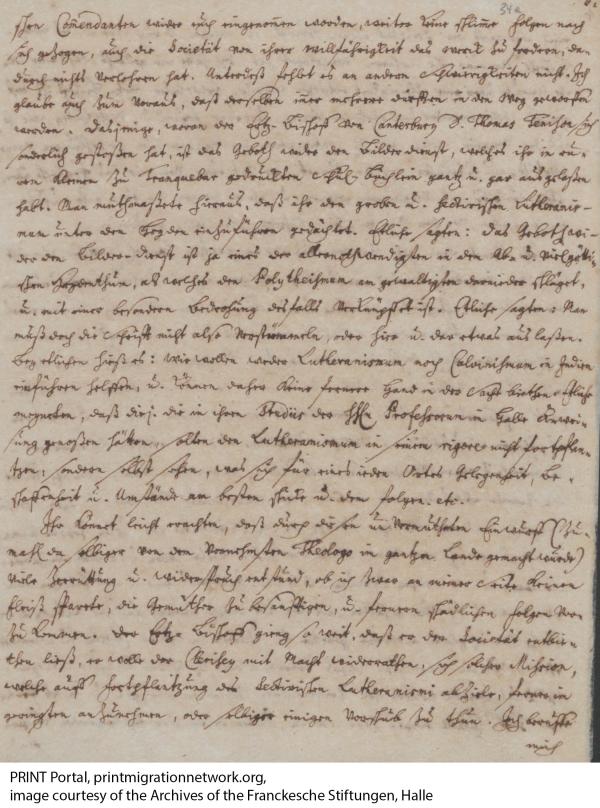 34a
schen Com̄endanten wider euch eingenom̄en worden, weiter keine schlim̄e Folgen nach
sich gezogen, auch die Societät von ihrer Willfährigkeit das Werck zu fordern, da-
durch nichts verlohren hat. Unterdeß fehlet es an andern Schwierigkeiten nicht. Ich
glaube auch zum Voraus, daß derselben im̄er mehrere dürfften in den Weg geworffen
werden. Dasjenige, woran der Ertz-Bischoff von Canterbury D. Thomas Tenison sich
sonderlich gestoßen hat, ist das Geboth wider den Bilderdienst, welches ihr in eu-
ren kleinen zu Tranquebar gedruckten Schul-Büchlein gantz u. gar ausgelaßen
habt. Man muthmaßete hieraus, daß ihr den groben u. sectirischen Lutheranis-
mum unter den Heyden einzuführen gedächtet. Etliche sagten: das Geboth wi-
der den Bilder-Dienst ist ja eines der allernothwendigsten in dem Ab- u. Vielgötti-
schen Heydenthum, als welches den Polytheismum am gewaltigsten darnieder schläget,
u. mit einer besondern Bedrohung desfalls verknüpffet ist. Etliche sagten: Man
muß doch die Schrifft nicht also verstüm̄meln, oder hier u. dar etwas auslaßen.
Bey etlichen hieß es: Wir wollen weder Lutheranismum noch Calvinismum in Indien
einführen helffen, u. können daher keine fernere Hand in der Sache biethen. Etliche
meyneten, daß die, die in ihren Studiis der HErn Professorum in Halle Anwei-
sung genoßen hätten, solten den Lutheranismum in seinem rigore nicht fortpflan-
tzen; sondern selbst sehen, was sich für eines ieden Ortes Gelegenheit, Be-
schaffenheit u. Umstände am besten schicke u. dem folgen. etc.
Ihr könnet leicht erachten, daß durch diesen unvermutheten Einwurff (zu-
mahl da selbiger von dem Vornehmsten Theologo im gantzen Lande gemacht wurde)
viele Zerrüttung u. Widerspruch entstund, ob ich zwar an meiner Seite keinen
Fleiß sparete, die Gemüther zu besänfftigen, u. fernern schädlichen Folgen vor
zu kommen. Der Ertz-Bischoff gieng so weit, daß er der Societät entbie-
then ließ, er wolle der Clerisey mit Macht widerrathen, sich solcher Mission,
welche auff Fortpflantzung des sectirischen Lutheranismi abziele, ferner im
geringsten anzunehmen, oder selbiger einigen Vorschub zu thun. Ich beruffe
mich
PRINT Portal, printmigrationnetwork.org,
image courtesy of the Archives of the Franckesche Stiftungen, Halle